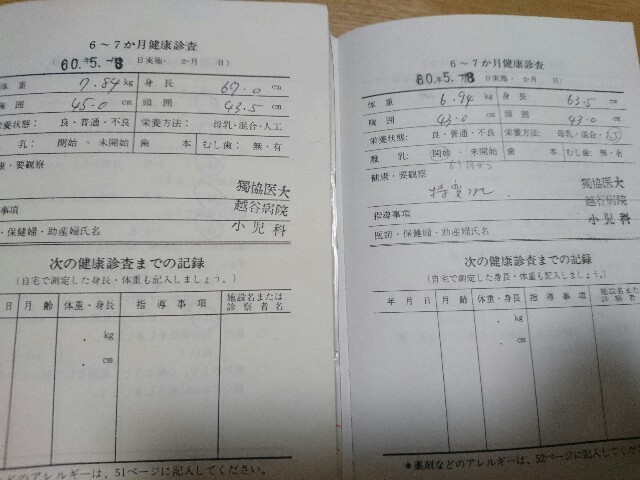 6～7か月健康診査
60.年5.-8 日実施・ か月 日)
体重 7.84 kg 身長 67.0 cm
胸囲 45.0 cm 頭囲 43.5 cm
栄養状態: 良・普通・不良 栄養方法: 母乳・混合・人工
乳: 開始・未開始 歯 本 むし歯: 無・有
康・要観察
獨協医大
越谷病院
小児科
事項
・保健婦・助産婦氏名
次の健康診査までの記録
(自宅で測定した身長・体重も記入しましょう。)
日 月齢 体重・身長 指導事項 施設名または診察者名
. kg
. cm
どのアレルギーは、51ページに記入してください。
6～7か月健康診査
60.年5.-8 日実施・ か月 日)
体重 6.94 kg 身長 63.5 cm
胸囲 43.0 cm 頭囲 43.0 cm
栄養状態: 良・普通・不良 栄養方法: 母乳・混合・
離乳: 開始・未開始 歯 本 むし歯: 無・有
健康・要観察
獨協医大
越谷病院
小児科
指導事項
医師・保健婦・助産婦氏名
次の健康診査までの記録
(自宅で測定した身長・体重も記入しましょう。)
年月日 月齢 体重・身長 指導事項 施設名また 診察者
. kg
. cm
*薬剤などのアレルギーは、52ページに記入してくださ